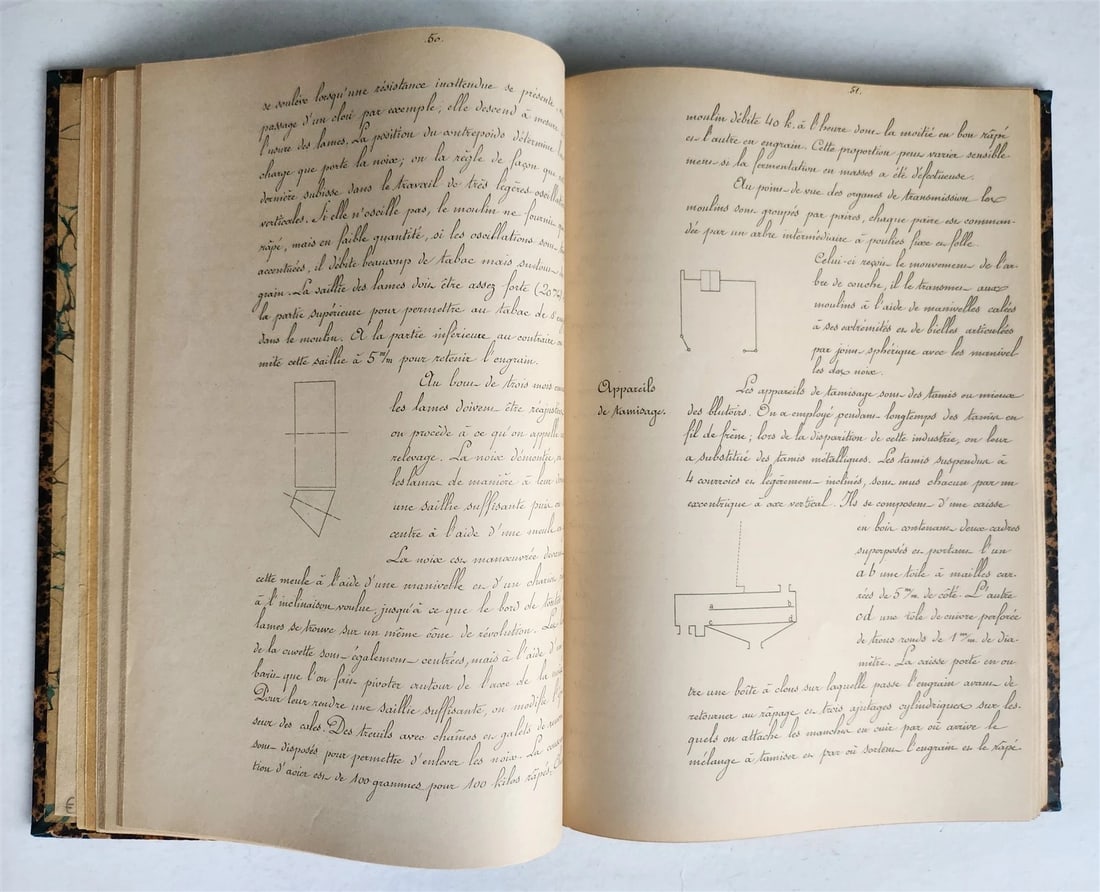 50.
se soulève lorsqu'une résistance inattendue se présente,
passage d'un clou par exemple; elle descend à mesure
l'usure des lames. La position du contrepoids détermine
charge que porte la noix; on la règle de façon que
dernière subisse dans le travail de très légères
verticales. Si elle n'oscille pas, le moulin ne fournit
râpé, mais en faible quantité, si les oscillations sont
accentuées, il débite beaucoup de tabac mais surtout
grain. La saillie des lames doit être assez forte
la partie supérieure pour permettre au tabac de
dans le moulin. A la partie inférieure au contraire
mite cette saillie à 5 m/m pour retenir l'engrain.
Au bout de trois mois
les lames doivent être
on procède à ce qu'on appelle
relevage. La noix démontée,
les lames de manière à leur
une saillie suffisante puis
centre à l'aide d'une meule
La noix est manœuvrée
cette meule à l'aide d'une manivelle et d'un
à l'inclinaison voulue, jusqu'à ce que le bord de
lames se trouve sur un même cône de révolution.
de la cuvette sont également centrées, mais à l'aide d'un
barit que l'on fait pivoter autour de l'axe de la
Pour leur rendre une saillie suffisante, on modifie
seur des cales. Des treuils avec chaînes et galets de
sont disposés pour permettre d'enlever les noix. La
tion d'acier est de 100 grammes pour 100 kilos râpés.
51.
moulin débite 40 k. à l'heure dont la moitié en bon râpé
et l'autre en engrain. Cette proportion peut varier sensible
ment si la fermentation en masses a été défectueuse.
Au point de vue des organes de transmission les
moulins sont groupés par paires, chaque paire est comman-
dée par un arbre intermédiaire à poulies fixe et folle.
Celui-ci reçoit le mouvement de l'ar-
bre de couche, il le transmet aux
moulins à l'aide de manivelles calées
à ses extrémités et de bielles articulées
par joint sphérique avec les manivel
les des noix.
Appareils
de tamisage.
Les appareils de tamisage sont des tamis ou mieux
des blutoirs. On a employé pendant longtemps des tamis en
fil de frêne; lors de la disparition de cette industrie, on leur
a substitué des tamis métalliques. Les tamis suspendus à
4 courroies et légèrement inclinés, sont mus chacun par un
excentrique à axe vertical. Ils se composent d'une caisse
en bois contenant deux cadres
superposés et portant l'un
ab une toile à mailles car-
rées de 5 m/m de côté. L'autre
cd une tôle de cuivre perforée
de trous ronds de 1 m/m de dia-
mètre. La caisse porte en ou-
a b
c d
tre une boîte à clous sur laquelle passe l'engrain avant de
retourner au râpage et trois ajutages cylindriques sur les-
quels on attache les manches en cuir par où arrive le
mélange à tamiser et par où sortent l'engrain et le râpé
€